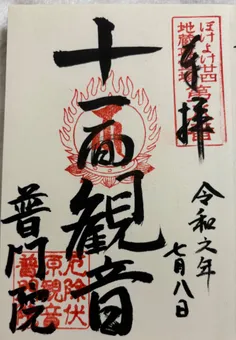 奉拝
ぼけよけ廿四
地蔵
十一面観音
令和元年
七月八日
普門院
厄除伏
原観音